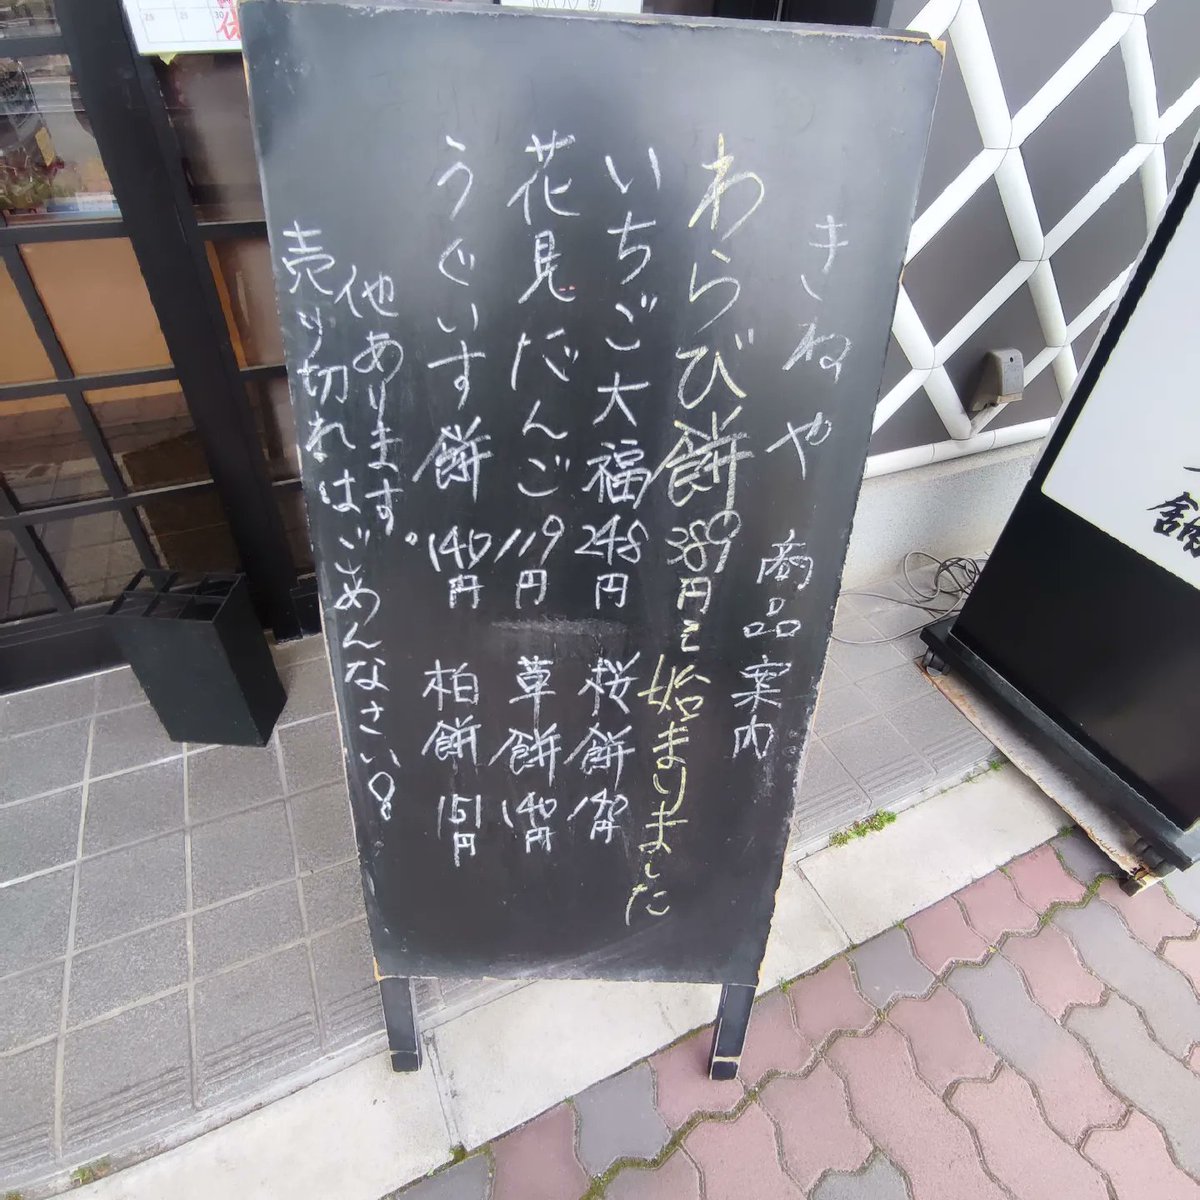 きねや 商品案内
わらび餅 389円〜始まりました
いちご大福 248円
桜餅 140円
花見だんご 119円
草餅 140円
うぐいす餅 140円
柏餅 151円
他あります。
売り切れはごめんなさい。